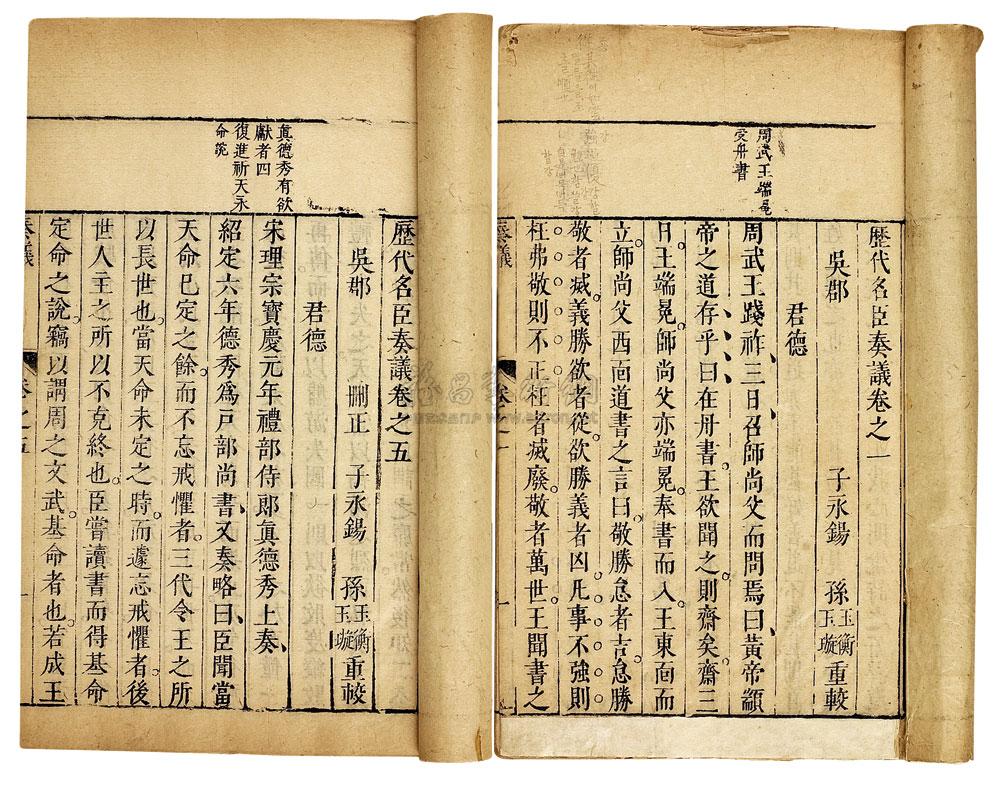 周武王端冕
受丹書
歷代名臣奏議卷之一
吳郡 子永錫 孫玉衡玉璇重較
君德
周武王踐祚三日召師尚父而問焉曰黃帝顓
帝之道存乎曰在丹書王欲聞之則齋矣齋三
日王端冕師尚父亦端冕奉書而入王東面而
立師尚父西面道書之言曰敬勝怠者吉怠勝
敬者滅義勝欲者從欲勝義者凶凡事不強則
枉弗敬則不正枉者滅廢敬者萬世王聞書之
奏議 卷之一
真德秀有欲
獻者四
復進祈天永
命說
歷代名臣奏議卷之五
吳郡 刪正 子永錫 孫玉衡玉璇重較
君德
宋理宗寶慶元年禮部侍郎真德秀上奏
紹定六年德秀爲戸部尚書又奏略曰臣聞當
天命巳定之餘而不忘戒懼者三代令王之所
以長世也當天命未定之時而遽忘戒懼者後
世人主之所以不克終也臣嘗讀書而得基命
定命之說竊以謂周之文武基命者也若成王
奏議 卷之五 一